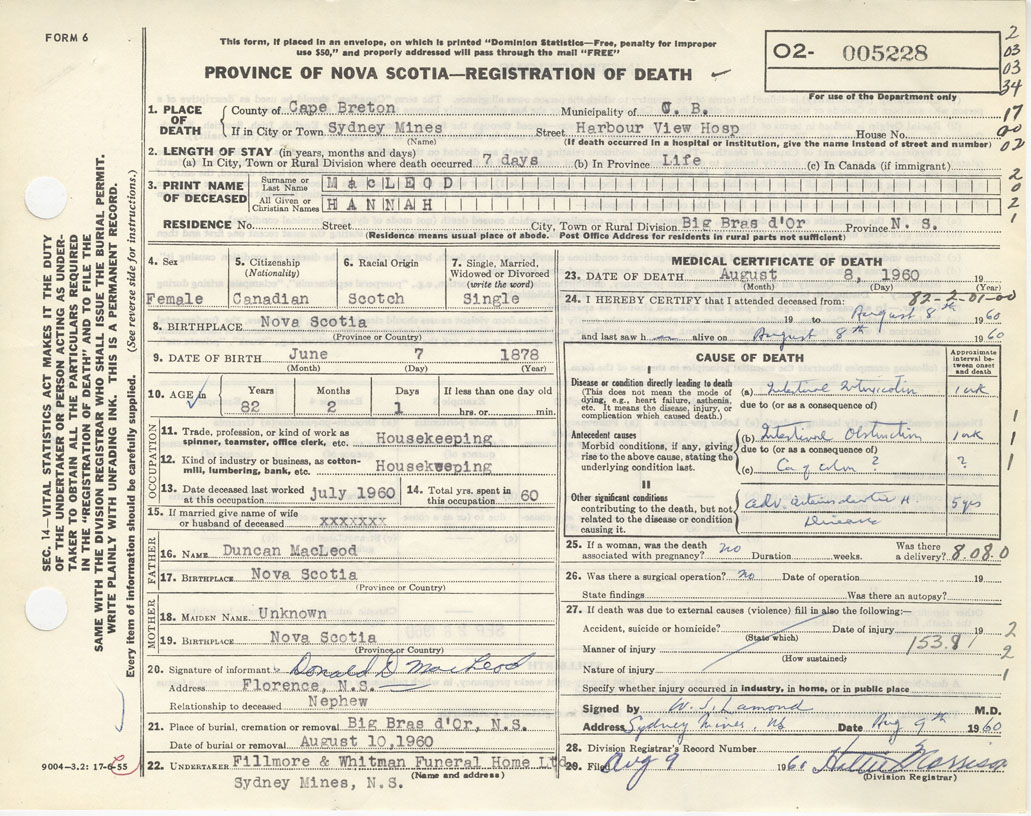 FORM 6
This form, if placed in an envelope, on which is printed "Dominion Statistics—Free, penalty for improper
use $50," and properly addressed will pass through the mail "FREE"
PROVINCE OF NOVA SCOTIA—REGISTRATION OF DEATH
02- 005228
For use of the Department only
2
03
03
34
17
00
02
2
0
2
1
1. PLACE OF DEATH
County of Cape Breton Municipality of C. B.
If in City or Town Sydney Mines Street Harbour View Hosp House No.
(Name) (If death occurred in a hospital or institution, give the name instead of street and number)
2. LENGTH OF STAY (in years, months and days)
(a) In City, Town or Rural Division where death occurred 7 days (b) In Province Life (c) In Canada (if immigrant)
3. PRINT NAME OF DECEASED
Surname or Last Name MacLEOD
All Given or Christian Names HANNAH
RESIDENCE No. Street City, Town or Rural Division Big Bras d'Or Province N. S.
(Residence means usual place of abode. Post Office Address for residents in rural parts not sufficient)
4. Sex
Female
5. Citizenship (Nationality)
Canadian
6. Racial Origin
Scotch
7. Single, Married, Widowed or Divorced (write the word)
Single
8. BIRTHPLACE Nova Scotia
(Province or Country)
9. DATE OF BIRTH June 7 1878
(Month) (Day) (Year)
10. AGE in Years Months Days If less than one day old
82 2 1 hrs. or min.
OCCUPATION
11. Trade, profession, or kind of work as
spinner, teamster, office clerk, etc. Housekeeping
12. Kind of industry or business, as cotton-
mill, lumbering, bank, etc. Housekeeping
13. Date deceased last worked at this occupation july 1960
14. Total yrs. spent in this occupation 60
15. If married give name of wife
or husband of deceased xxxxxxx
FATHER
16. NAME Duncan MacLeod
17. BIRTHPLACE Nova Scotia
(Province or Country)
MOTHER
18. MAIDEN NAME Unknown
19. BIRTHPLACE Nova Scotia
(Province or Country)
20. Signature of informant Donald D MacLeod
Address Florence, N.S.
Relationship to deceased Nephew
21. Place of burial, cremation or removal Big Bras d'Or, N.S.
Date of burial or removal August 10,1960
22. UNDERTAKER Fillmore & Whitman Funeral Home Ltd
(Name and address)
Sydney Mines, N.S.
MEDICAL CERTIFICATE OF DEATH
23. DATE OF DEATH August 8, 1960 19
(Month) (Day) (Year)
24. I HEREBY CERTIFY that I attended deceased from: 82-2-01-00
19 to August 8th 1960
and last saw h alive on August 8th 1960
CAUSE OF DEATH
Approximate interval between onset and death
I
Disease or condition directly leading to death
(This does not mean the mode of
dying, e.g., heart failure, asthenia,
etc. It means the disease, injury, or
complication which caused death.)
(a) Intestinal Intoxication 1 wk
due to (or as a consequence of)
Antecedent causes
Morbid conditions, if any, giving
rise to the above cause, stating the
underlying condition last.
(b) Intestinal Obstruction 1 wk
due to (or as a consequence of)
(c) Ca of colon ? ?
1
1
1
II
Other significant conditions
contributing to the death, but not
related to the disease or condition
causing it.
H.
Disease
5 yrs
25. If a woman, was the death
associated with pregnancy? no Duration weeks. Was there a delivery? 8.08.0
26. Was there a surgical operation? no Date of operation 19
State findings Was there an autopsy?
27. If death was due to external causes (violence) fill in also the following:—
Accident, suicide or homicide? Date of injury 19
(State which)
Manner of injury 153.8
(How sustained)
Nature of injury
Specify whether injury occurred in industry, in home, or in public place
2
2
1
Signed by W. S. Lamond M.D.
Address Sydney Mines, NS Date Aug 9th 1960
28. Division Registrar's Record Number
29. Filed Aug 9 1960 Hattie Morrison
(Division Registrar)
SEC. 14—VITAL STATISTICS ACT MAKES IT THE DUTY
OF THE UNDERTAKER OR PERSON ACTING AS UNDER-
TAKER TO OBTAIN ALL THE PARTICULARS REQUIRED
IN THE "REGISTRATION OF DEATH" AND TO FILE THE
SAME WITH THE DIVISION REGISTRAR WHO SHALL ISSUE THE BURIAL PERMIT.
WRITE PLAINLY WITH UNFADING INK. THIS IS A PERMANENT RECORD.
Every item of information should be carefully supplied. (See reverse side for instructions.)
9004—3.2: 17-6-55